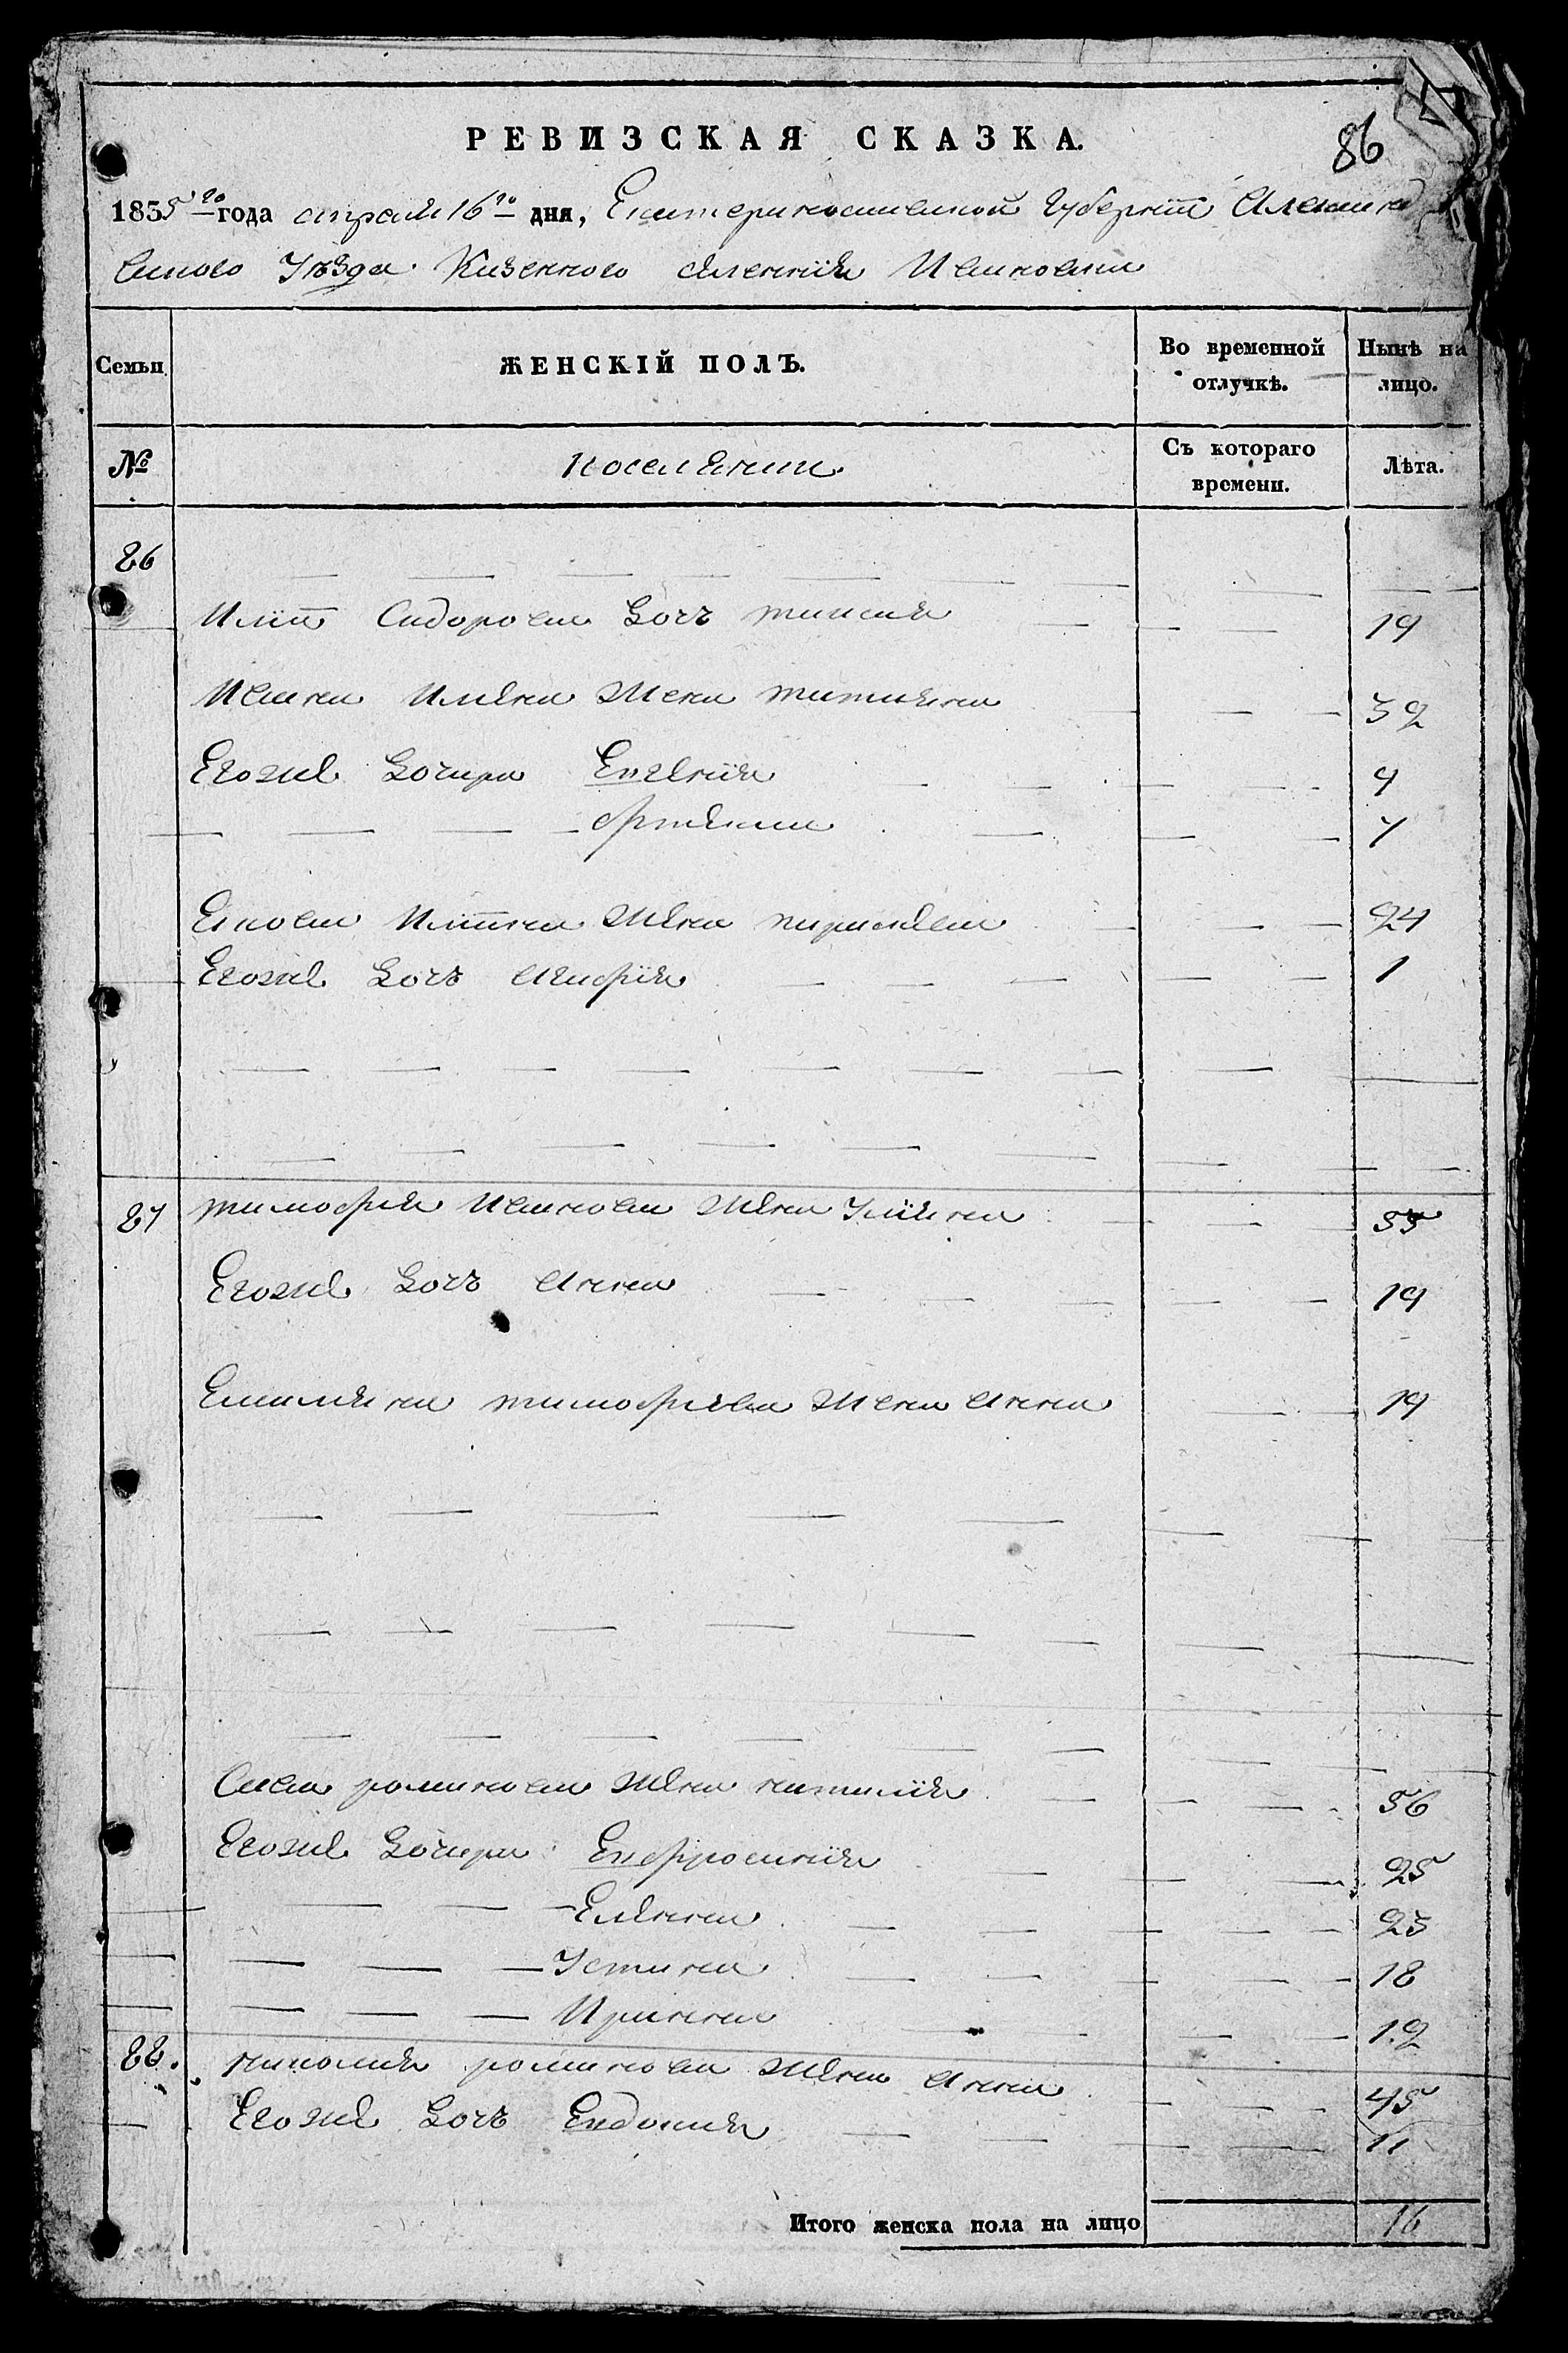 86
РЕВИЗСКАЯ СКАЗКА.
1835 го года апреля 16 го дня, Екатеринославской Губернии Александ
вского Уезда Казенного селения Ивановки
Семьи ЖЕНСКІЙ ПОЛЪ. Во временной отлучкѣ. Нынѣ на лицо.
№ поселянки Съ котораго времени. Лѣта.
26
Илии Сидорова Дочь таисия 19
Ивана Илина Жена татияна 32
Егожъ Дочири Евгения 9
7
Якова Илиина Жена параскева 24
Егожъ Дочь Агафия 1
27 тимофея Иванова Жена Улияна 55
Егожъ Дочь Анна 19
Емилияна тимофиева Жена Анна 19
Савы романова Жена наталия 56
Егожъ Дочири Евфросиния 25
Еленна 23
Устина 18
Иринна 12
28. николая романова Жена Анна 45
Егожъ Дочь Евдокия 11
Итого женска пола на лицо 16